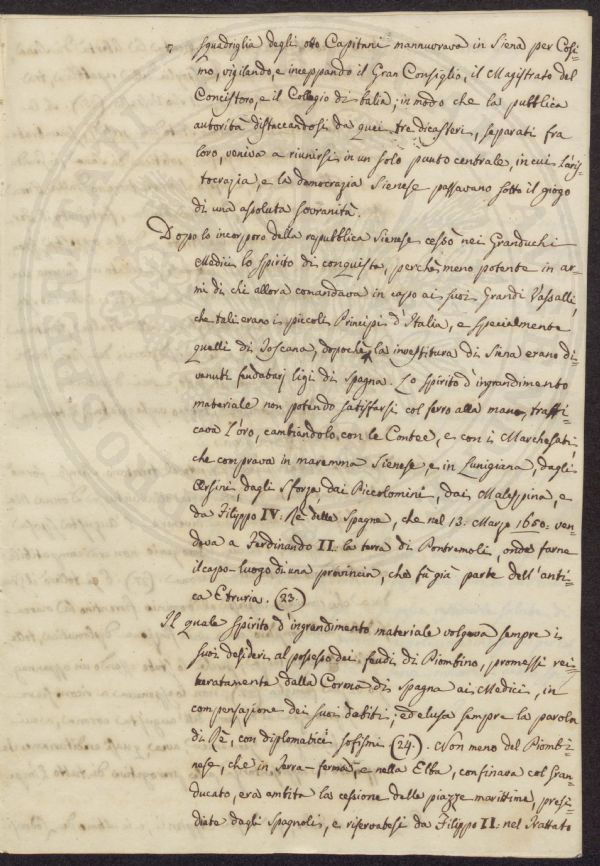 squadriglia degli otto Capitani mannuovava in Siena per Cosi-
mo, vigilando, e inceppando il Gran Consiglio, il Magistrato del
Concistoro, e il Collegio di Balia; in modo che la pubblica
autorità distaccandosi da quei tre dicasteri, separati fra
loro, veniva a riunirsi in un solo punto centrale, in cui l'aris-
tocrazia, e la democrazia Sienese passavano sotto il giogo
di una assoluta sovranità.
Dopo lo incorporo della repubblica Sienese cessò nei Granduchi
Medici lo spirito di conquista, perchè meno potente in ar-
mi di chi allora comandava in capo ai suoi Grandi Vassalli,
che tali erano i piccoli Principi d'Italia, e specialmente
quelli di Toscana, dopochè la investitura di Siena erano di-
venuti feudatarj ligi di Spagna. Lo spirito d'ingrandimento
materiale non potendo satisfarsi col ferro alla mano, traffi-
cava l'oro, cambiandolo con le Contee, e con i Marchesati,
che comprava in maremma Sienese e in Lunigiana, dagli
Orsini, dagli Sforza, dai Piccolomini, dai Malaspina, e
da Filippo IV. Rè delle Spagne, che nel 13. Marzo 1650: ven-
deva a Ferdinando II: la terra di Pontremoli, onde farne
il capo-luogo di una provincia, che fù già parte dell'anti-
ca Etruria. (23)
Il quale spirito d'ingrandimento materiale volgeva sempre i
suoi desiderj al possesso dei feudi di Piombino, promessi rei-
teratamente dalla Corona di Spagna ai Medici, in
compensazione dei suoi debiti; ed elusa sempre la parola
di Rè, con diplomatici sofismi (24.). Non meno del Piombi-
nese, che in Terra-ferma, e nella Elba, confinava col Gran-
ducato, era ambita la cessione delle piazze marittime, presi-
diate dagli Spagnoli, e riservatesi da Filippo II: nel Trattato